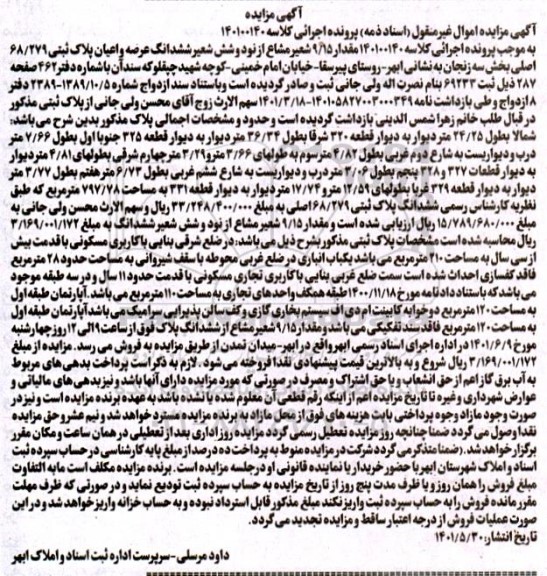 آگهی مزایده
آگهی مزایده اموال غیرمنقول (اسناد ذمه) پرونده اجرائی کلاسه ۱۴۰۱۰۰۱۴۰
به موجب پرونده اجرائی کلاسه ۱۴۰۱۰۰۱۴۰ مقدار ۹/۱۵ شعیر مشاع از نود و شش شعیر ششدانگ عرصه و اعیان پلاک ثبتی ۶۸/۲۷۹
اصلی بخش سه زنجان به نشانی ابهر-روستای پیرسقا-خیابان امام خمینی-کوچه شهید چپقلوکه سند آن با شماره دفتر ۴۶۲ صفحه
۲۸۷ ذیل ثبت ۶۹۲۳۳ بنام نصرت اله ولی جانی ثبت و صادر گردیده است و باستناد سند ازدواج شماره ۱۳۸۹/۱۰/۵-۲۳۸۹ دفتر
۸ ازدواج و طی بازداشت نامه ۱۴۰۱/۳/۱۸-۱۴۰۱۰۵۸۲۷۰۰۳۰۰۰۳۴۹ سهم الارث زوج آقای محسن ولی جانی از پلاک ثبتی مذکور
در قبال طلب خانم زهرا شمس الدینی بازداشت گردیده است و حدود و مشخصات اجمالی پلاک مذکور بدین شرح می باشد:
شمالا بطول ۲۴/۲۵ متر دیوار به دیوار قطعه ۳۲۰ شرقا بطول ۳۶/۳۴ متر دیوار به دیوار قطعه ۳۲۵ جنوبا اول بطول ۷/۶۶ متر
درب و دیواریست به شارع دوم غربی بطول ۴/۸۲ متر سوم به طولهای ۳/۶۶ متر و ۳/۲۹ متر چهارم شرقی بطولهای ۴/۸۱ متر دیوار
به دیوار قطعات ۳۲۷ و ۳۲۸ پنجم بطول ۷/۰۶ متر درب و دیواریست به شارع ششم غربی بطول ۶/۷۳ متر هفتم بطول ۳/۷۷ متر
دیوار به دیوار قطعه ۳۲۹ غربا بطولهای ۱۲/۵۹ متر و ۱۷/۷۴ متر دیوار به دیوار قطعه ۳۳۱ به مساحت ۷۹۷/۷۸ مترمربع که طبق
نظریه کارشناس رسمی ششدانگ پلاک ثبتی ۶۸/۲۷۹ اصلی به مبلغ ۳۳/۲۴۸/۴۰۰/۰۰۰ ریال و سهم الارث محسن ولی جانی به
مبلغ ۱۵/۷۸۹/۶۸۰/۰۰۰ ریال ارزیابی شده است و مقدار ۹/۱۵ شعیر مشاع از نود و شش شعیر ششدانگ به مبلغ ۳/۱۶۹/۰۰۱/۱۷۲
ریال محاسبه شده است مشخصات پلاک ثبتی مذکور بشرح ذیل می باشد: در ضلع شرقی بنایی با کاربری مسکونی با قدمت بیش
از سی سال به مساحت ۲۱۰ مترمربع می باشد یکباب انباری در ضلع غربی محوطه با سقف شیروانی به مساحت حدود ۲۸ مترمربع
فاقد کفسازی احداث شده است سمت ضلع غربی بنایی با کاربری تجاری مسکونی با قدمت حدود ۱۱ سال و در سه طبقه موجود
می باشد که باستناد دادنامه مورخ ۱۴۰۰/۱۱/۱۸ طبقه همکف واحدهای تجاری به مساحت ۱۱۰ مترمربع می باشد. آپارتمان طبقه اول
به مساحت ۱۲۰ مترمربع دو خوابه کابینت ام دی اف سیستم بخاری گازی و کف سالن پذیرایی سرامیک می باشد آپارتمان طبقه اول
به مساحت ۱۲۰ مترمربع فاقد سند تفکیکی می باشد و مقدار ۹/۱۵ شعیر مشاع از ششدانگ پلاک فوق از ساعت ۹ الی ۱۲ روز چهارشنبه
مورخ ۱۴۰۱/۶/۹ در اداره اجرای اسناد رسمی ابهر واقع در ابهر-میدان تمدن از طریق مزایده به فروش می رسد. مزایده از مبلغ
۳/۱۶۹/۰۰۱/۱۷۲ ریال شروع و به بالاترین قیمت پیشنهادی نقدا فروخته می شود. لازم به ذکر است پرداخت بدهی های مربوط
به آب برق گاز اعم از حق انشعاب و یا حق اشتراک و مصرف در صورتی که مورد مزایده دارای آنها باشد و نیز بدهی های مالیاتی و
عوارض شهرداری و غیره تا تاریخ مزایده اعم از اینکه رقم قطعی آن معلوم شده یا نشده باشد به عهده برنده مزایده است و نیز در
صورت وجود مازاد وجوه پرداختی بابت هزینه های فوق از محل مازاد به برنده مزایده مسترد خواهد شد و نیم عشر و حق مزایده
نقدا وصول می گردد ضمنا چنانچه روز مزایده تعطیل رسمی گردد مزایده روز اداری بعد از تعطیلی در همان ساعت و مکان مقرر
برگزار خواهد شد. (ضمنا متذکر می گردد شرکت در مزایده منوط به پرداخت ده درصد از مبلغ پایه کارشناسی در حساب سپرده ثبت
اسناد و املاک شهرستان ابهر با حضور خریدار یا نماینده قانونی او در جلسه مزایده است. برنده مزایده مکلف است مابه التفاوت
مبلغ فروش را همان روز و یا ظرف مدت پنج روز از تاریخ مزایده به حساب سپرده ثبت تودیع نماید و در صورتی که ظرف مهلت
مقرر مانده فروش را به حساب سپرده ثبت واریز نکند مبلغ مذکور قابل استرداد نبوده و به حساب خزانه واریز خواهد شد و در این
صورت عملیات فروش از درجه اعتبار ساقط و مزایده تجدید می گردد.
تاریخ انتشار: ۱۴۰۱/۵/۳۰
داود مرسلی-سرپرست اداره ثبت اسناد و املاک ابهر